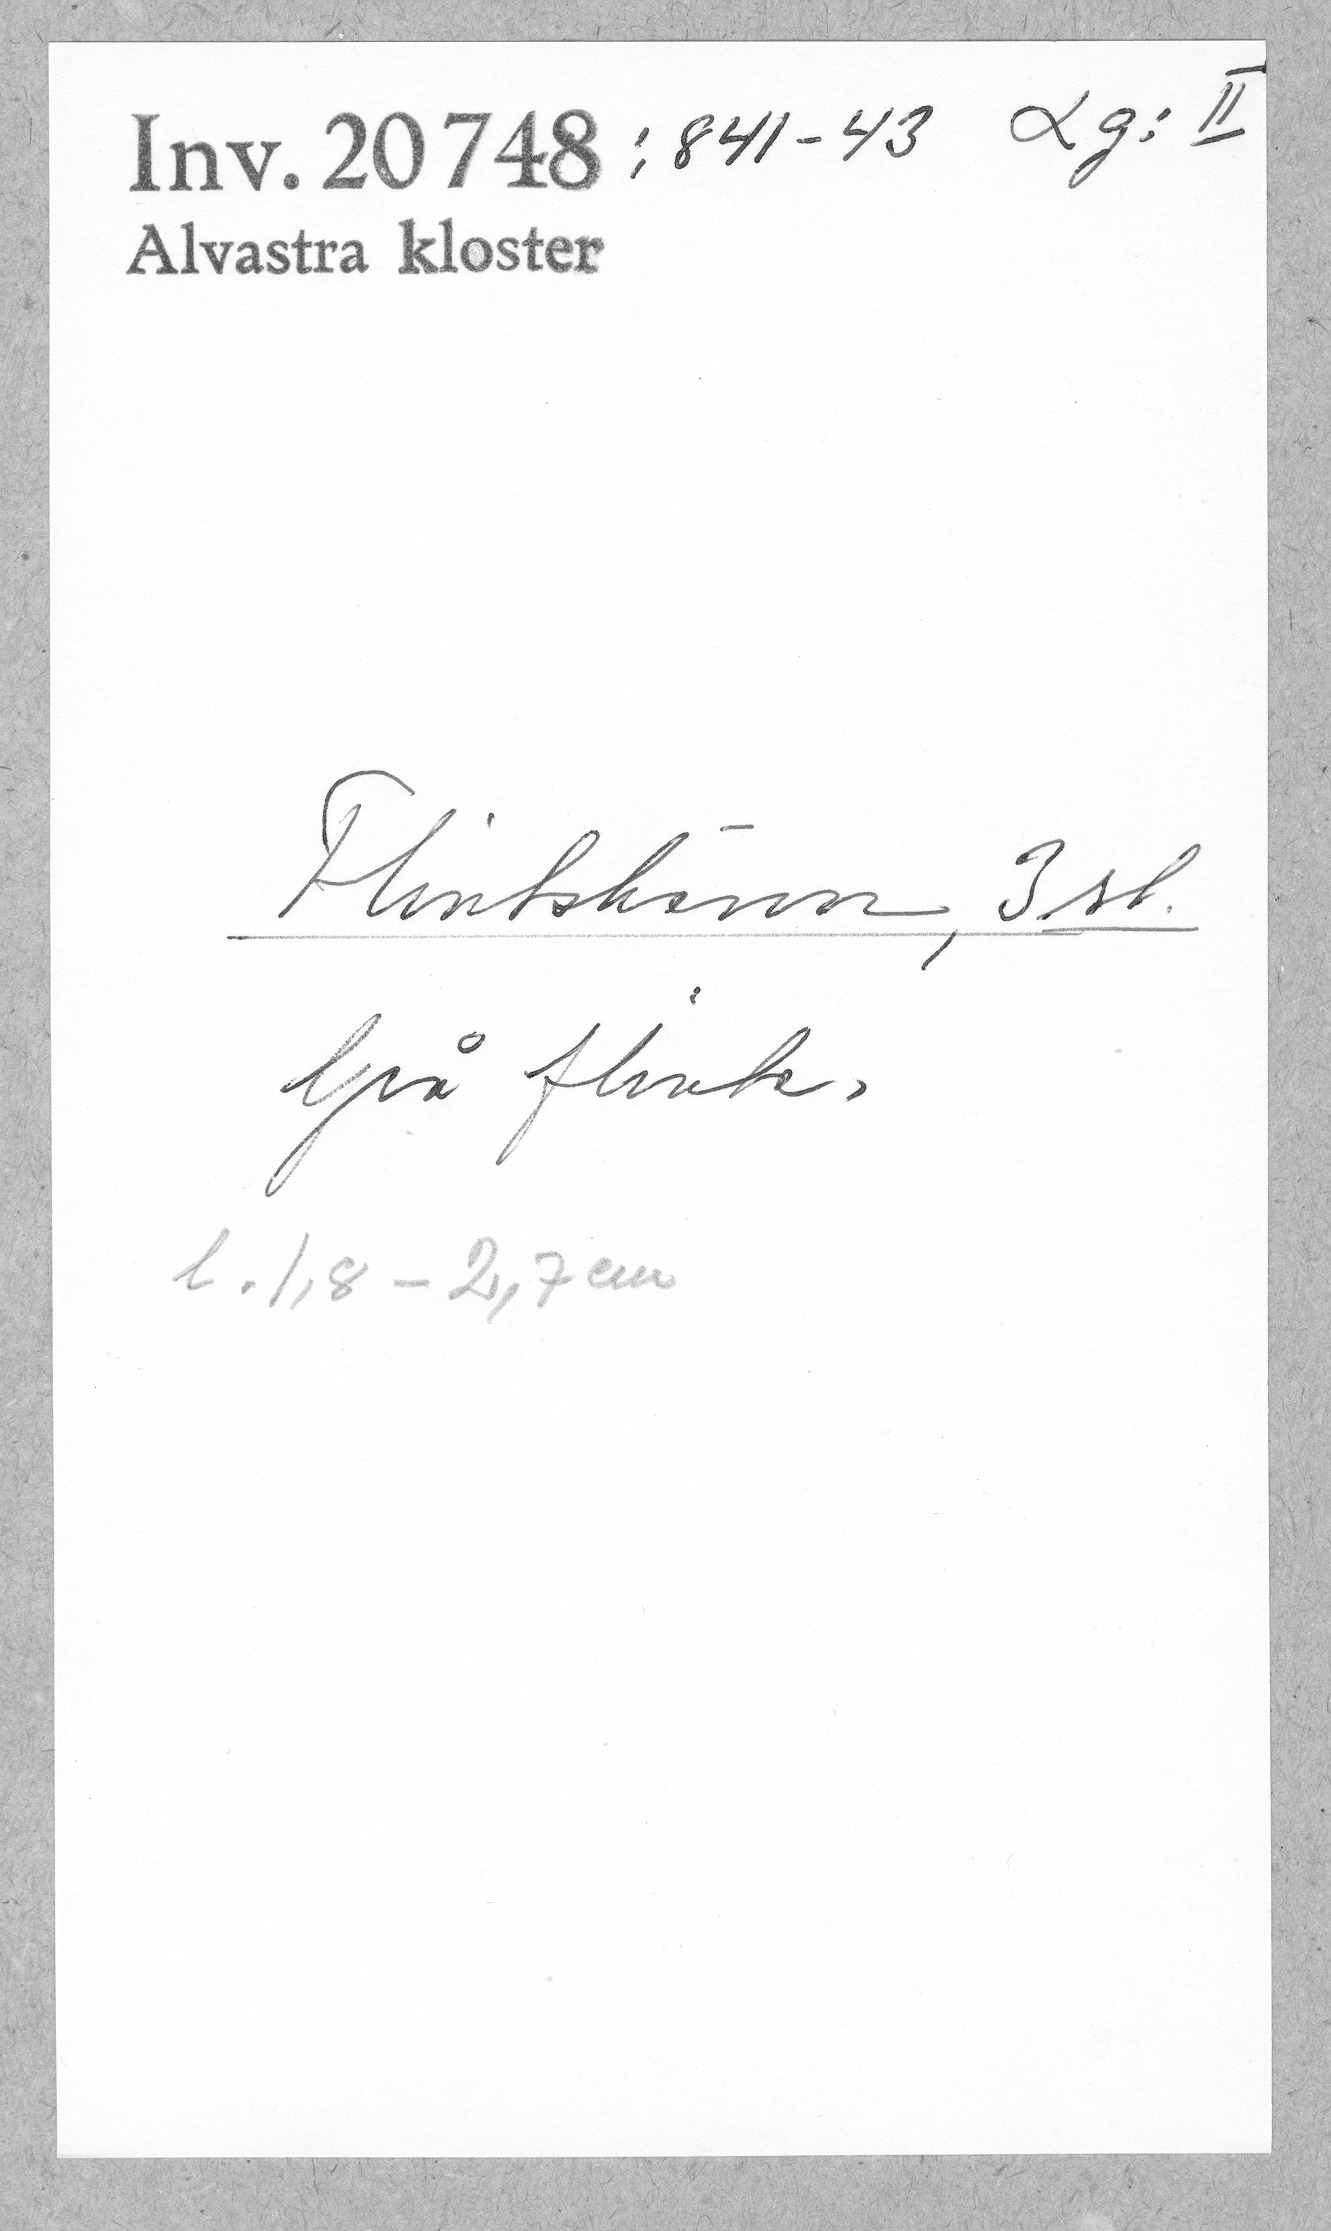 Inv. 20 748 :841-43 Lg: II
Alvastra kloster
Flintskärvor, 3 st.
Grå flinta.
l. 1,8 - 2,7 cm